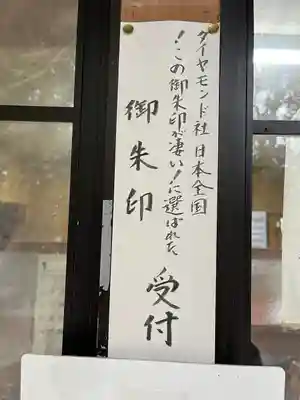 ダイヤモンド社 日本全国
！この御朱印が凄い！に選ばれた
御朱印 受付